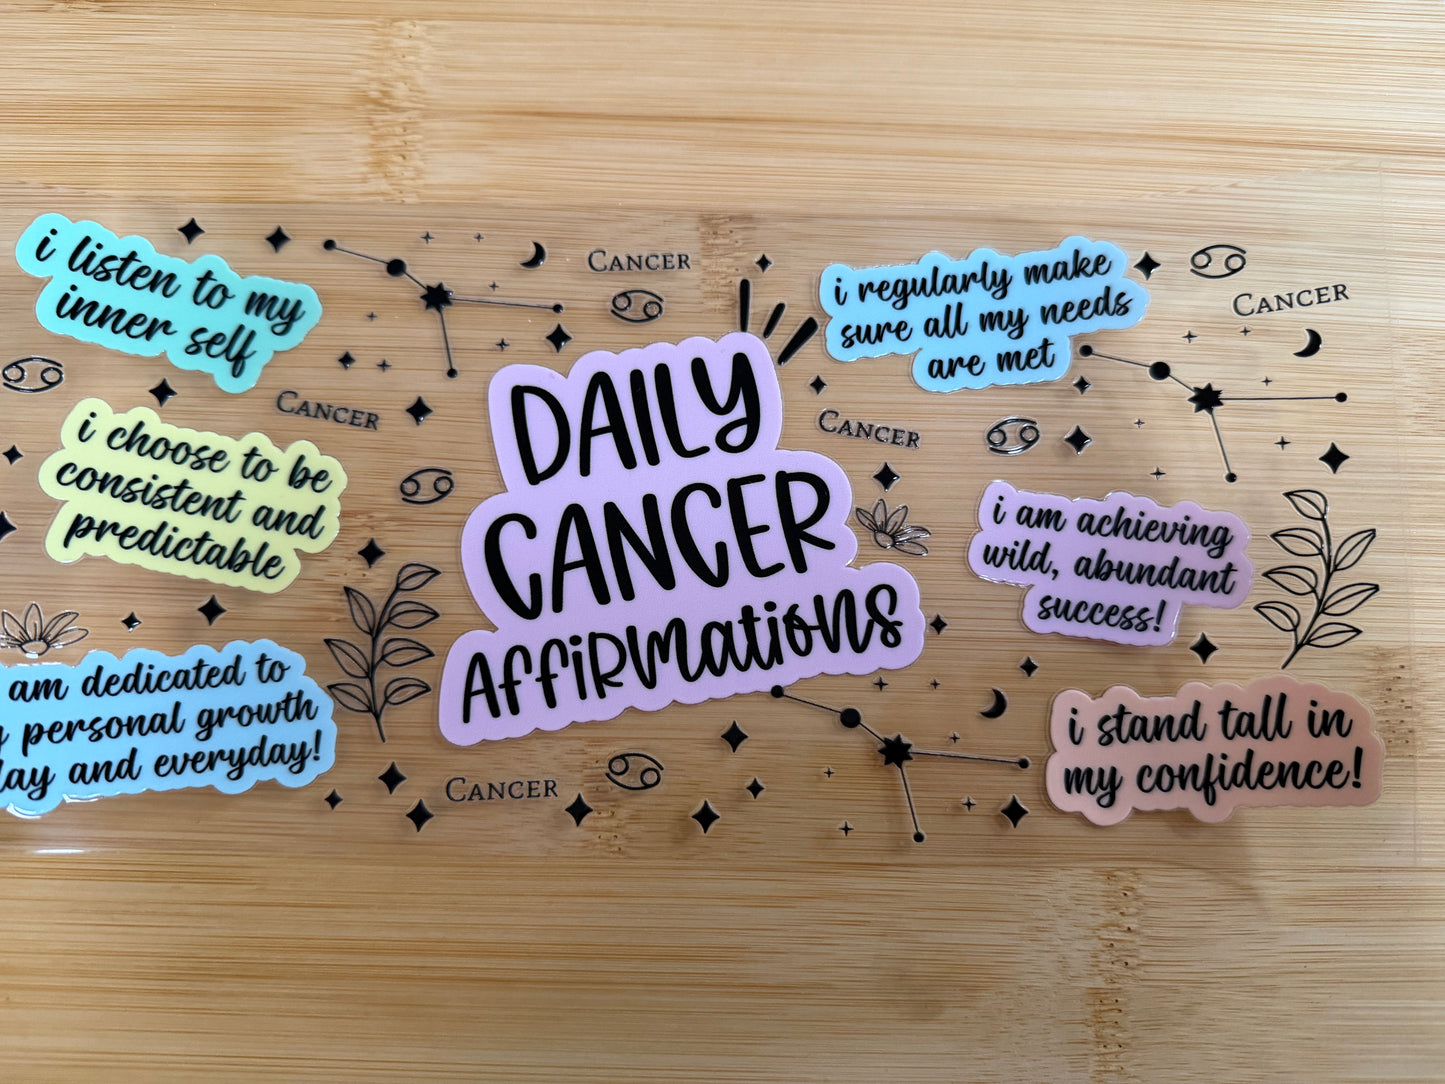 i listen to my
inner self
Cancer
i choose to be
consistent and
predictable
am dedicated to
personal growth
and everyday!
Cancer
DAILY
CANCER
AFFiRMatiONS
Cancer
Cancer
i regularly make
sure all my needs
are met
Cancer
i am achieving
wild, abundant
success!
i stand tall in
my confidence!